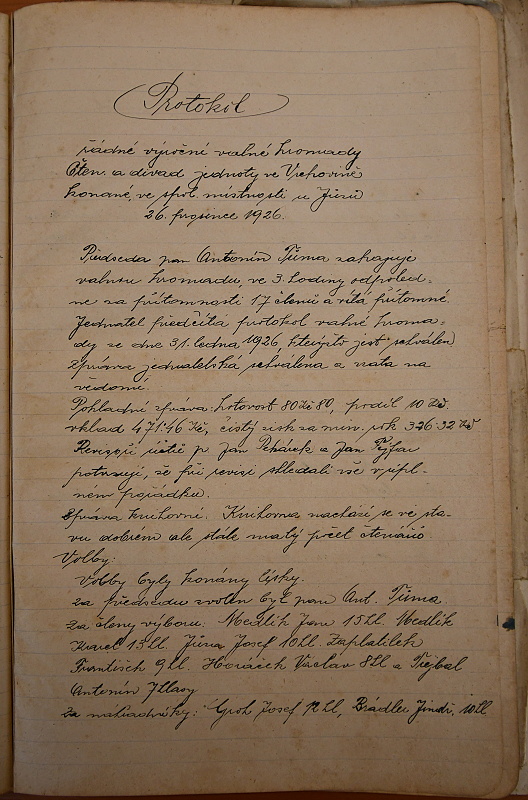 Protokol
řádné výroční valné hromady
Čten. a divad jednoty ve Vrchovině
konané, ve spol. místnosti u Jůnů
26. prosince 1926.
Předseda pan Antonín Tůma zahajuje
valnou hromadu, ve 3. hodiny odpoled-
ne za přítomnosti 17 členů a vítá přítomné.
Jednatel předčítá protokol valné hroma-
dy ze dne 31. ledna 1926, kterýžto jest schválen
Zpráva jednatelská schválena a vzata na
vědomí.
Pokladní zpráva: hotovost 80 Kč 80, podíl 10 Kč.
vklad 471.46 Kč, čistý zisk za min. rok 326.32 Kč
Revisoři účtů p. Jan a Jan
potvrzují, že při revisi shledali vše v úpl-
ném pořádku.
Zpráva knihovní. Knihovna nachází se ve sta-
vu dobrém ale stále malý počet čtenářů.
Volby:
Volby byly konány lístky.
za předsedu zvolen byl pan Ant. Tůma
za členy výboru: Jan 15 hl. Medlík
Karel 13 hl. Jůna Josef 10 hl. Zaplatílek
František 9 hl. Horáček Václav 8 hl a Trejbal
Antonín 7 hlasy
Za náhradníky: Groh Josef 12 hl, Brádler Jindř. 10 hl